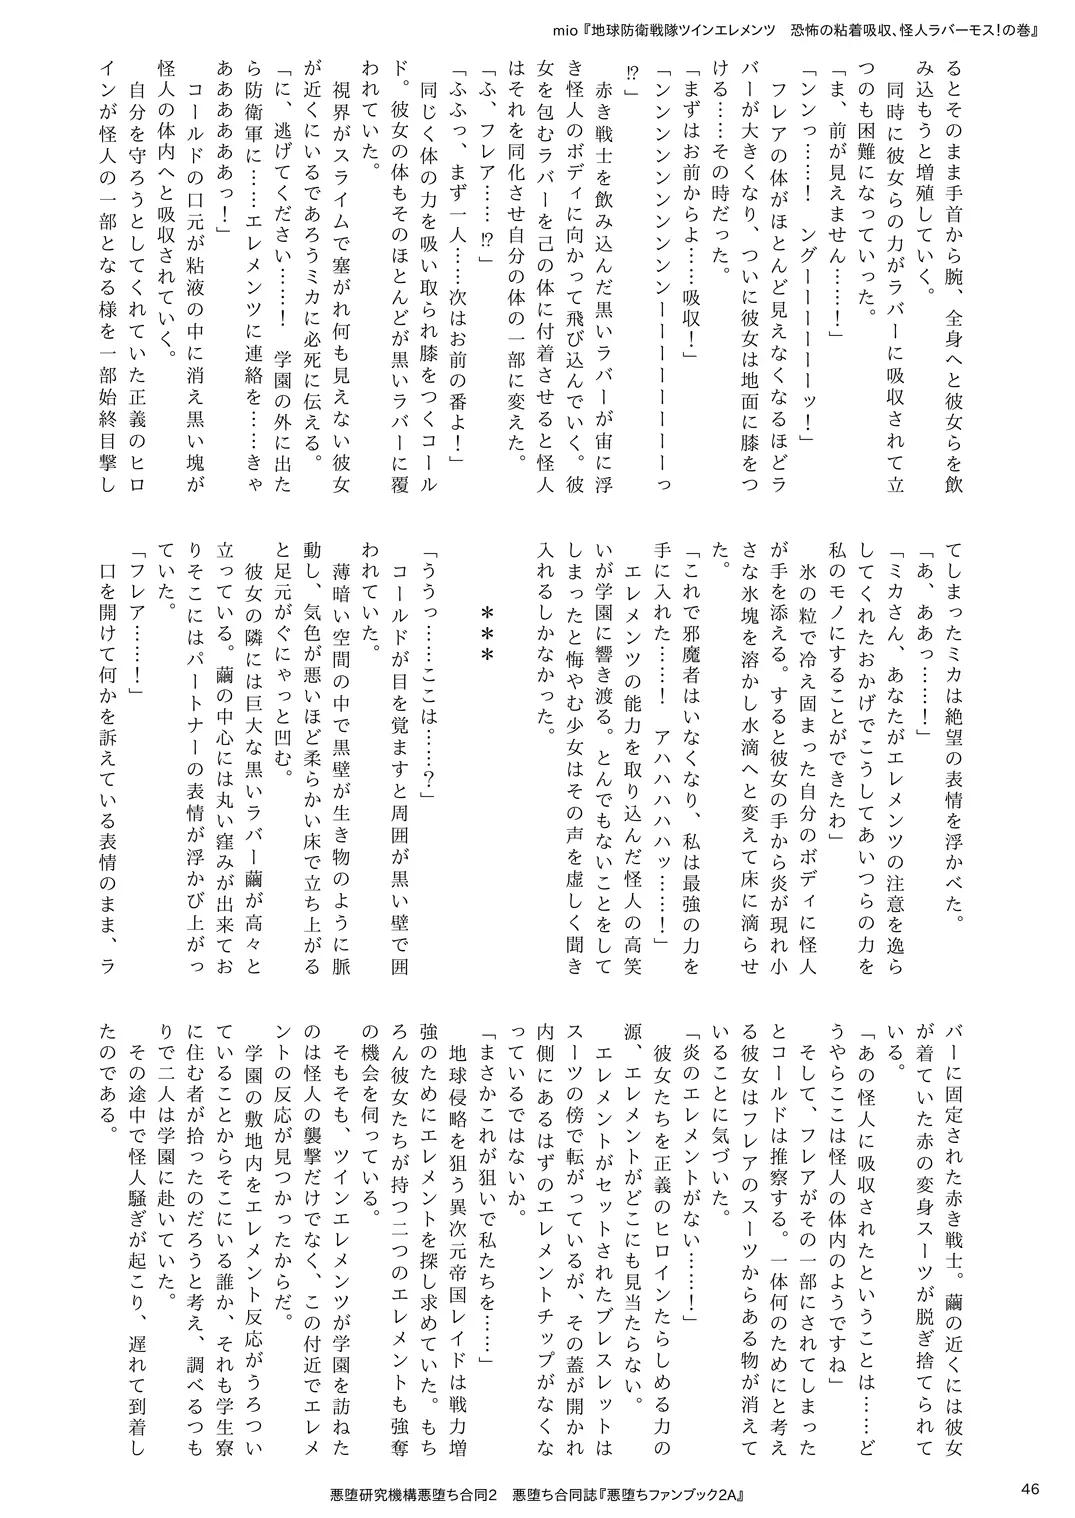 mio『地球防衛戦隊ツインエレメンツ　恐怖の粘着吸収、怪人ラバーモス！の巻』
るとそのまま手首から腕、全身へと彼女らを飲
み込もうと増殖していく。
　同時に彼女らの力がラバーに吸収されて立
つのも困難になっていった。
「ま、前が見えません……！」
「ンンっ……！　ングーーーーーーッ！」
　フレアの体がほとんど見えなくなるほどラ
バーが大きくなり、ついに彼女は地面に膝をつ
ける……その時だった。
「まずはお前からよ……吸収！」
「ンンンンンンンンンンーーーーーーーーっ
⁉」
　赤き戦士を飲み込んだ黒いラバーが宙に浮
き怪人のボディに向かって飛び込んでいく。彼
女を包むラバーを己の体に付着させると怪人
はそれを同化させ自分の体の一部に変えた。
「ふ、フレア……⁉」
「ふふっ、まず一人……次はお前の番よ！」
　同じく体の力を吸い取られ膝をつくコール
ド。彼女の体もそのほとんどが黒いラバーに覆
われていた。
　視界がスライムで塞がれ何も見えない彼女
が近くにいるであろうミカに必死に伝える。
「に、逃げてください……！　学園の外に出た
ら防衛軍に……エレメンツに連絡を……きゃ
ああああああっ！」
　コールドの口元が粘液の中に消え黒い塊が
怪人の体内へと吸収されていく。
　自分を守ろうとしてくれていた正義のヒロ
インが怪人の一部となる様を一部始終目撃し
てしまったミカは絶望の表情を浮かべた。
「あ、ああっ……！」
「ミカさん、あなたがエレメンツの注意を逸ら
してくれたおかげでこうしてあいつらの力を
私のモノにすることができたわ」
　氷の粒で冷え固まった自分のボディに怪人
が手を添える。すると彼女の手から炎が現れ小
さな氷塊を溶かし水滴へと変えて床に滴らせ
た。
「これで邪魔者はいなくなり、私は最強の力を
手に入れた……！　アハハハハハッ……！」
　エレメンツの能力を取り込んだ怪人の高笑
いが学園に響き渡る。とんでもないことをして
しまったと悔やむ少女はその声を虚しく聞き
入れるしかなかった。
＊＊＊
「ううっ……ここは……？」
　コールドが目を覚ますと周囲が黒い壁で囲
われていた。
　薄暗い空間の中で黒壁が生き物のように脈
動し、気色が悪いほど柔らかい床で立ち上がる
と足元がぐにゃっと凹む。
　彼女の隣には巨大な黒いラバー繭が高々と
立っている。繭の中心には丸い窪みが出来てお
りそこにはパートナーの表情が浮かび上がっ
ていた。
「フレア……！」
　口を開けて何かを訴えている表情のまま、ラ
バーに固定された赤き戦士。繭の近くには彼女
が着ていた赤の変身スーツが脱ぎ捨てられて
いる。
「あの怪人に吸収されたということは……ど
うやらここは怪人の体内のようですね」
　そして、フレアがその一部にされてしまった
とコールドは推察する。一体何のためにと考え
る彼女はフレアのスーツからある物が消えて
いることに気づいた。
「炎のエレメントがない……！」
　彼女たちを正義のヒロインたらしめる力の
源、エレメントがどこにも見当たらない。
　エレメントがセットされたブレスレットは
スーツの傍で転がっているが、その蓋が開かれ
内側にあるはずのエレメントチップがなくな
っているではないか。
「まさかこれが狙いで私たちを……」
　地球侵略を狙う異次元帝国レイドは戦力増
強のためにエレメントを探し求めていた。もち
ろん彼女たちが持つ二つのエレメントも強奪
の機会を伺っている。
　そもそも、ツインエレメンツが学園を訪ねた
のは怪人の襲撃だけでなく、この付近でエレメ
ントの反応が見つかったからだ。
　学園の敷地内をエレメント反応がうろつい
ていることからそこにいる誰か、それも学生寮
に住む者が拾ったのだろうと考え、調べるつも
りで二人は学園に赴いていた。
　その途中で怪人騒ぎが起こり、遅れて到着し
たのである。
46
悪堕研究機構悪堕ち合同2　悪堕ち合同誌『悪堕ちファンブック2A』